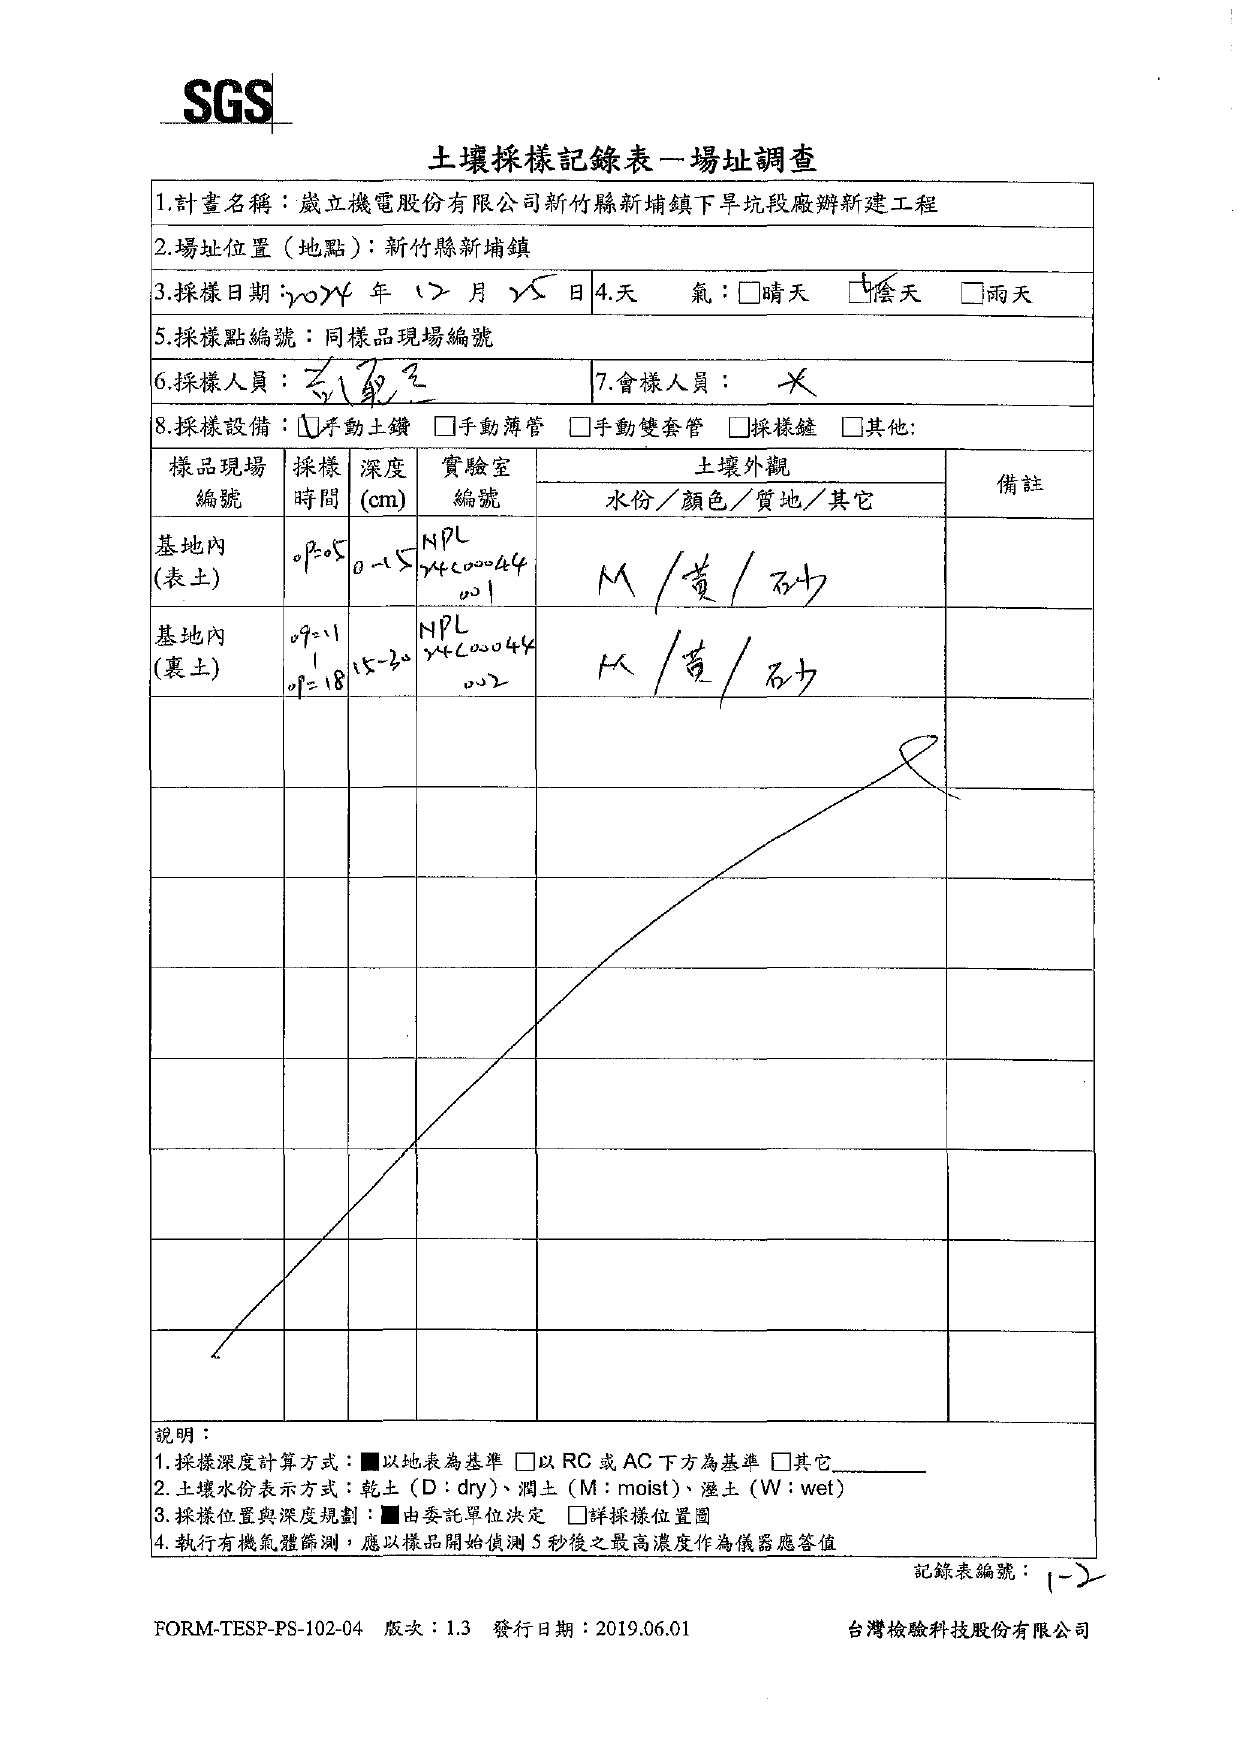 SGS
土壤採樣記錄表－場址調查
1.計畫名稱：崴立機電股份有限公司新竹縣新埔鎮下旱坑段廠辦新建工程
2.場址位置（地點）：新竹縣新埔鎮
3.採樣日期：2024 年 12 月 25 日 4.天 氣：□晴天 ☑陰天 □雨天
5.採樣點編號：同樣品現場編號
6.採樣人員： 7.會樣人員：
8.採樣設備：☑手動土鑽 □手動薄管 □手動雙套管 □採樣鏟 □其他:
樣品現場 採樣 深度 實驗室 土壤外觀 備註
編號 時間 (cm) 編號 水份／顏色／質地／其它
基地內 09:05 0-15 NPL
(表土) 24C00044 M / 黃 / 砂
001
基地內 09:11 NPL
(裏土) | 15-30 24C00044 M / 黃 / 砂
09:18 002
說明：
1. 採樣深度計算方式：■以地表為基準 □以 RC 或 AC 下方為基準 □其它
2. 土壤水份表示方式：乾土（D：dry）、潤土（M：moist）、溼土（W：wet）
3. 採樣位置與深度規劃：■由委託單位決定 □詳採樣位置圖
4. 執行有機氣體篩測，應以樣品開始偵測 5 秒後之最高濃度作為儀器應答值
記錄表編號： 1-2
FORM-TESP-PS-102-04 版次：1.3 發行日期：2019.06.01 台灣檢驗科技股份有限公司